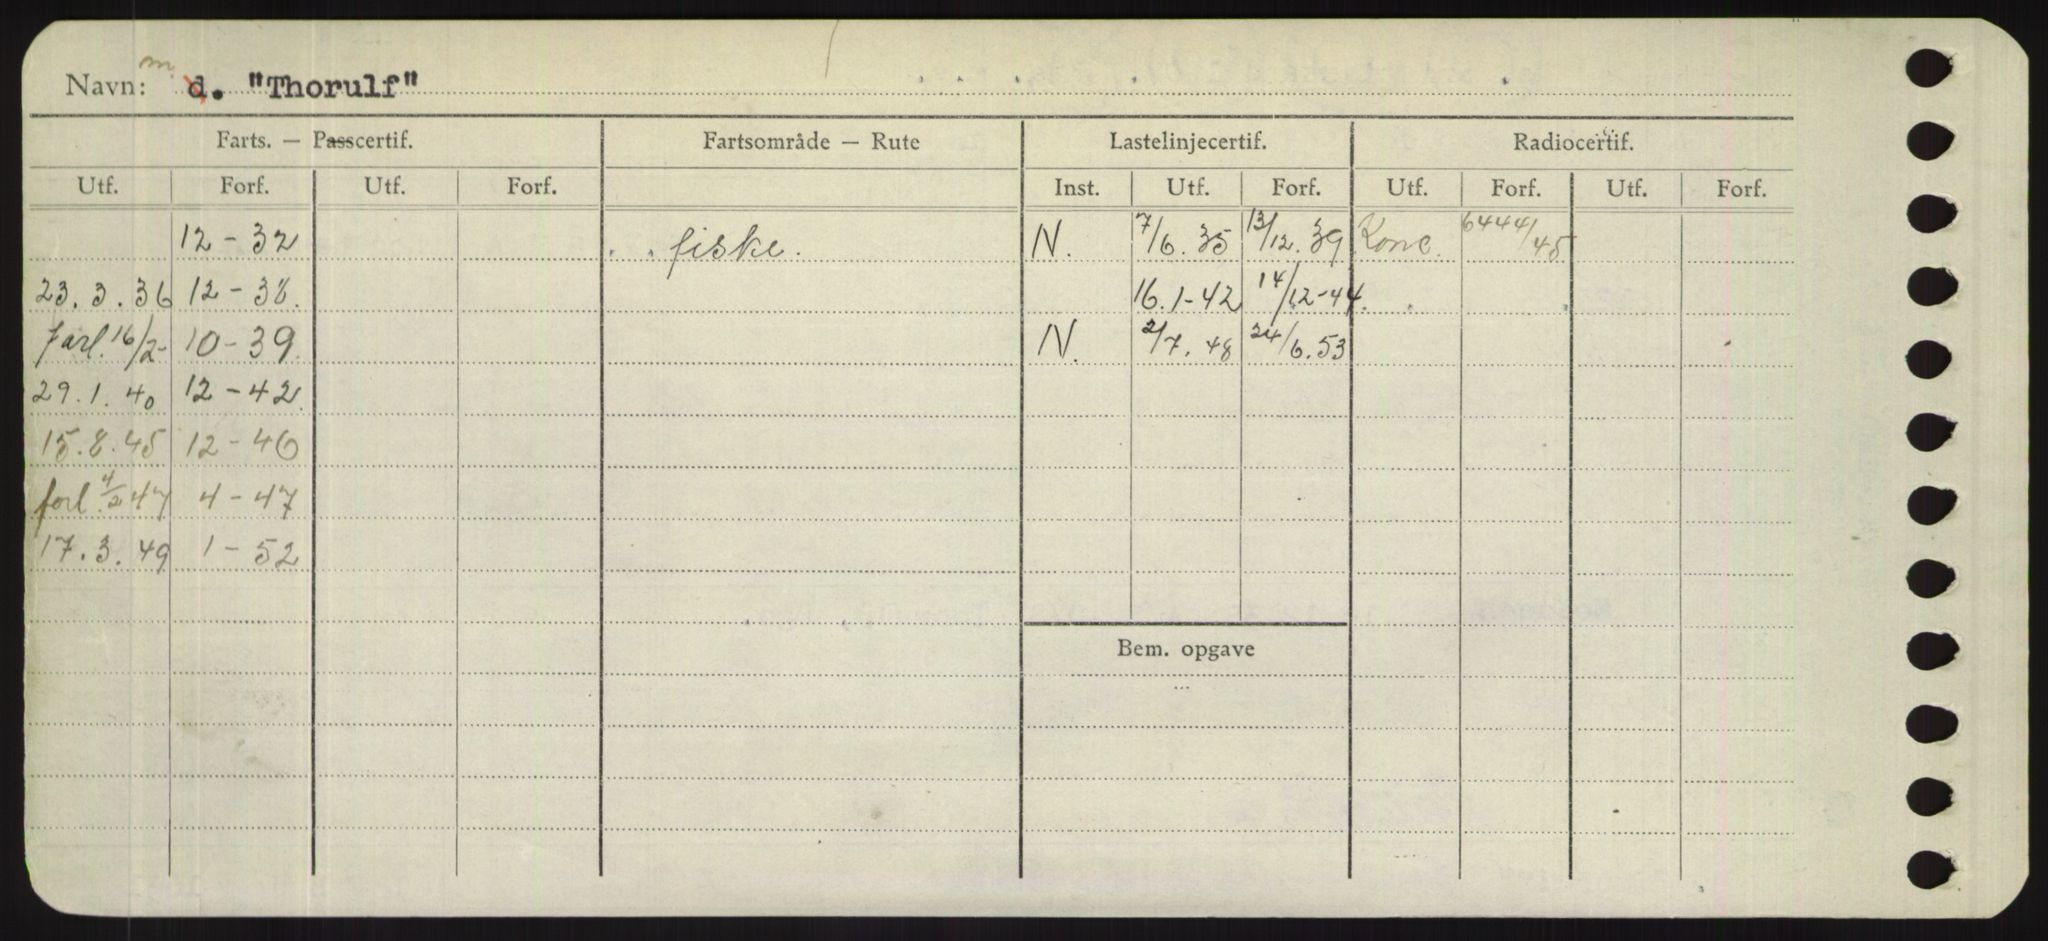 Navn: m d. "Thorulf"
Farts. — Passcertif. Fartsområde — Rute Lastelinjecertif. Radiocertif.
Utf. Forf. Utf. Forf. Inst. Utf. Forf. Utf. Forf. Utf. Forf.
12-32 fiske. N. 7/6.35 13/12.39 Konc. 6444/45
23.3.36 12-38. 16.1-42 14/12-44.
forl. 16/2- 10-39. N. 2/7.48 24/6.53
29.1.40 12-42.
15.8.45 12-46
forl. 4/2 47 4-47
17.3.49 1-52
Bem. opgave